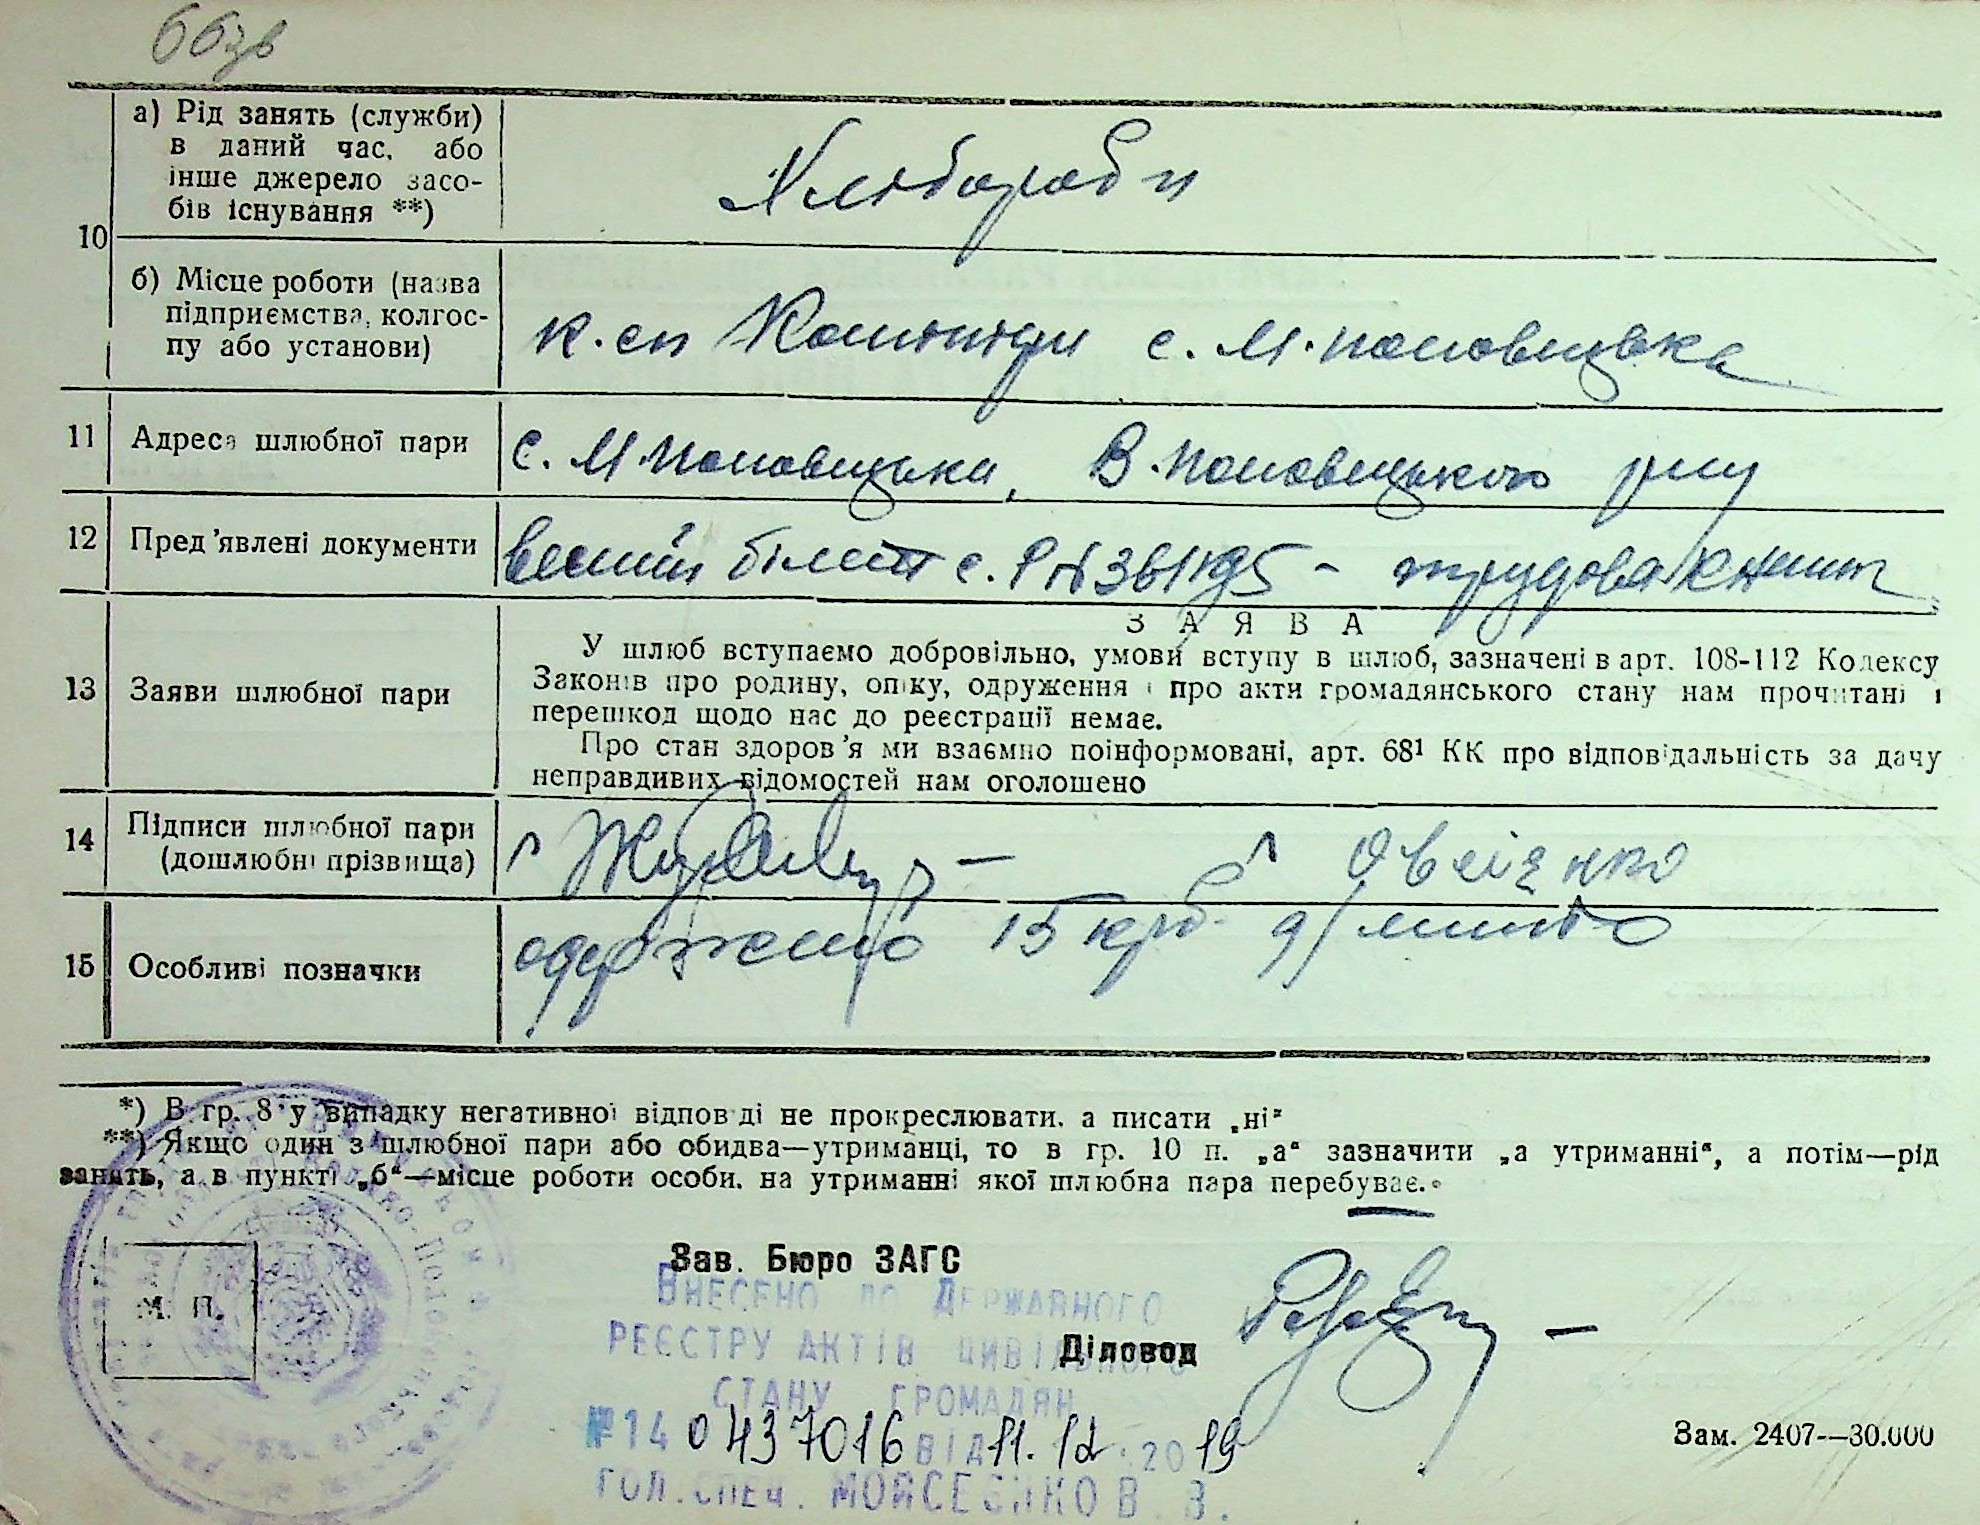 66зв
а) Рід занять (служби)
в даний час, або
інше джерело засо-
бів існування **)
Хлібороби
10
б) Місце роботи (назва
підприємства, колгос-
пу або установи)
к.сп с. М.поповицька
11 Адреса шлюбної пари
с. М.поповицька, В.поповицького р-ну
12 Пред'явлені документи
білет с. № - трудова книж
13 Заяви шлюбної пари
ЗАЯВА
У шлюб вступаємо добровільно, умови вступу в шлюб, зазначені в арт. 108-112 Кодексу
Законів про родину, опіку, одруження і про акти громадянського стану нам прочитані і
перешкод щодо нас до реєстрації немає.
Про стан здоров'я ми взаємно поінформовані, арт. 68¹ КК про відповідальність за дачу
неправдивих відомостей нам оголошено
14 Підписи шлюбної пари
(дошлюбні прізвища)
15 Особливі позначки
одержано 15 крб.
*) В гр. 8 у випадку негативної відповіді не прокреслювати, а писати „ні"
**) Якщо один з шлюбної пари або обидва—утриманці, то в гр. 10 п. „а" зазначити „а утриманні", а потім—рід
занять, а в пункті „б"—місце роботи особи, на утриманні якої шлюбна пара перебуває.
М. П.
Зав. Бюро ЗАГС
Внесено до Державного
реєстру актів цивільного
Діловод
стану громадян
№14 0437016 від 11.12.2019
гол.спец. Мойсеєнко В. В.
Зам. 2407—30.000